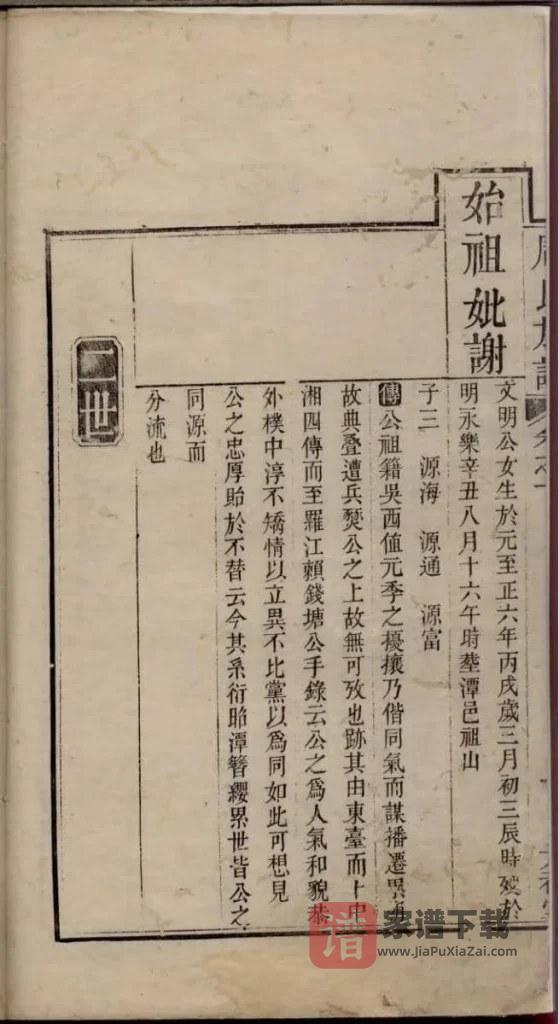 周氏族譜 卷之一
始祖妣謝
文明公女生於元至正六年丙戌歲三月初三辰時歿於
明永樂辛丑八月十六午時塟潭邑祖山
子三 源海 源通 源富
傳公祖籍吳西值元季之擾攘乃偕同氣而謀播遷累
故典疊遭兵燹公之上故無可攷也跡其由東臺而上中
湘四傳而至羅江賴錢塘公手錄云公之為人氣和貌恭
外樸中淳不矯情以立異不比黨以為同如此可想見
公之忠厚貽於不替云今其系衍昭潭簪纓累世皆公之
同源而
分流也
二世
譜
家谱下载
www.JiaPuXiaZai.com